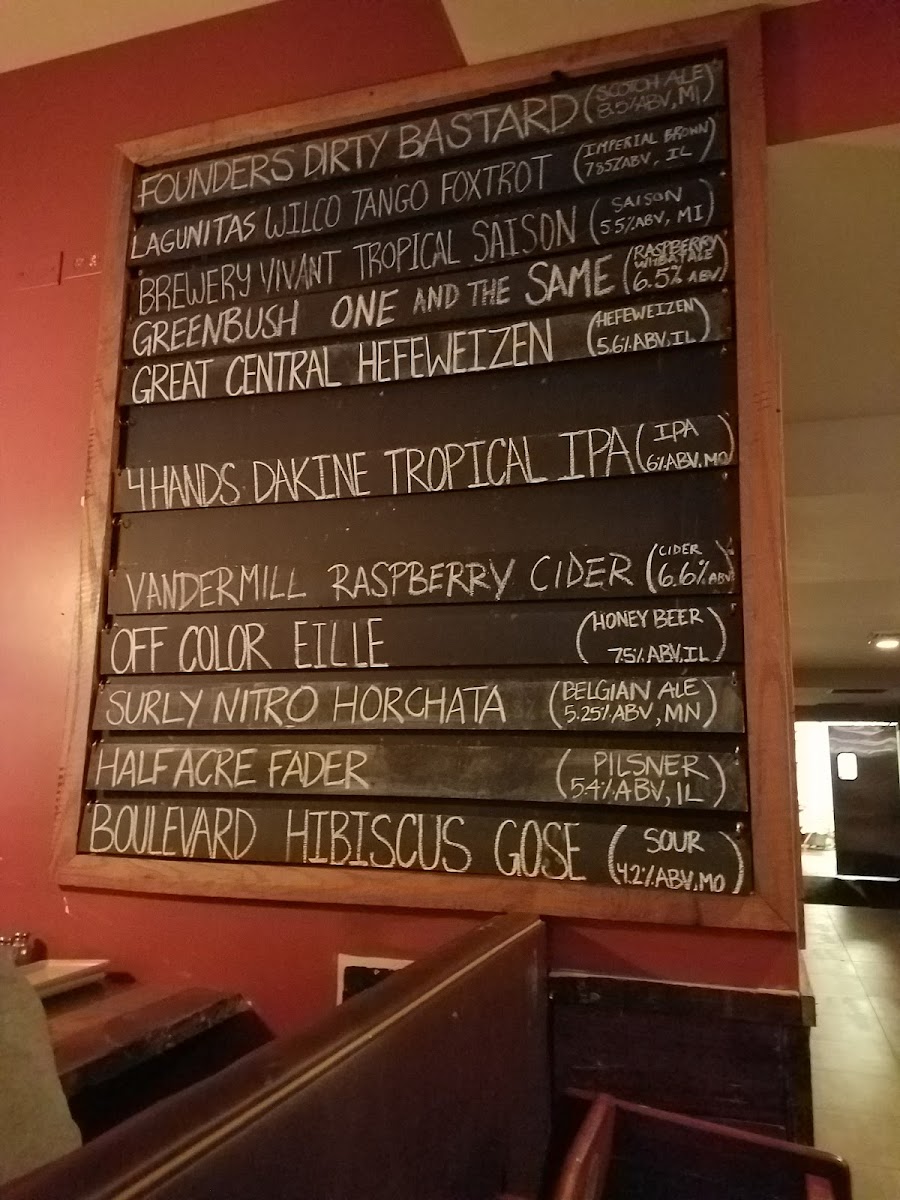 FOUNDERS DIRTY BASTARD (SCOTCH ALE 8.5%ABV, MI)
LAGUNITAS WILCO TANGO FOXTROT (IMPERIAL BROWN 7.85%ABV, IL)
BREWERY VIVANT TROPICAL SAISON (SAISON 5.5%ABV, MI)
GREENBUSH ONE AND THE SAME (RASPBERRY WHEAT ALE 6.5% ABV)
GREAT CENTRAL HEFEWEIZEN (HEFEWEIZEN 5.6%ABV, IL)
4 HANDS DAKINE TROPICAL IPA (IPA 6%ABV, MO)
VANDERMILL RASPBERRY CIDER (CIDER 6.6% ABV)
OFF COLOR EILLE (HONEY BEER 7.5%ABV, IL)
SURLY NITRO HORCHATA (BELGIAN ALE 5.25%ABV, MN)
HALF ACRE FADER (PILSNER 5.4%ABV, IL)
BOULEVARD HIBISCUS GOSE (SOUR 4.2%ABV, MO)